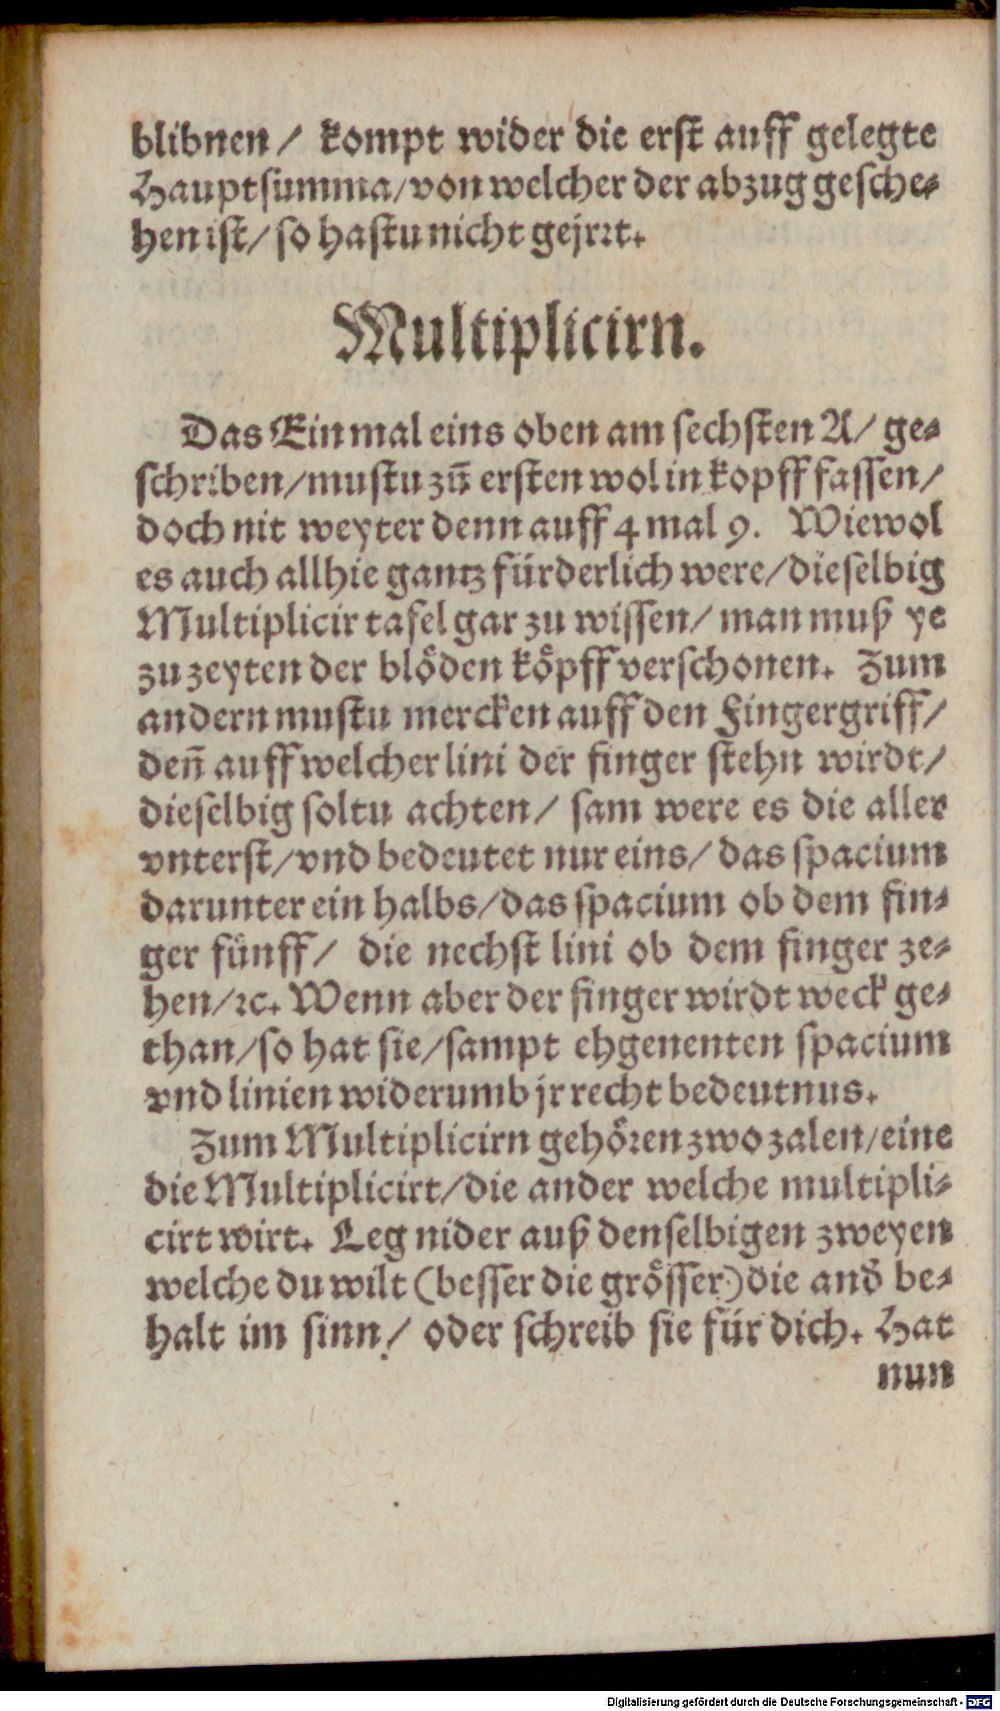 blibnen / kompt wider die erst auff gelegte
Hauptsumma / von welcher der abzug gesche⸗
hen ist / so hastu nicht gejrꝛt.
Multiplicirn.
Das Einmal eins oben am sechsten A / ge⸗
schriben / mustu zū ersten wol in kopff fassen /
doch nit weyter denn auff 4 mal 9. Wiewol
es auch allhie gantz fürderlich were / dieselbig
Multiplicir tafel gar zu wissen / man muß ye
zu zeyten der blöden köpff verschonen. Zum
andern mustu mercken auff den Fingergriff /
deñ auff welcher lini der finger stehn wirdt /
dieselbig soltu achten / sam were es die aller
vnterst / vnd bedeutet nur eins / das spacium
darunter ein halbs / das spacium ob dem fin⸗
ger fünff / die nechst lini ob dem finger ze⸗
hen / ꝛc. Wenn aber der finger wirdt weck ge⸗
than / so hat sie / sampt ehgenenten spacium
vnd linien widerumb jr recht bedeutnus.
Zum Multiplicirn gehöꝛen zwo zalen / eine
die Multiplicirt / die ander welche multipli⸗
cirt wirt. Leg nider auß denselbigen zweyen
welche du wilt (besser die grösser) die and̄ be⸗
halt im sinn / oder schreib sie für dich. Hat
nun
Digitalisierung gefördert durch die Deutsche Forschungsgemeinschaft - DFG